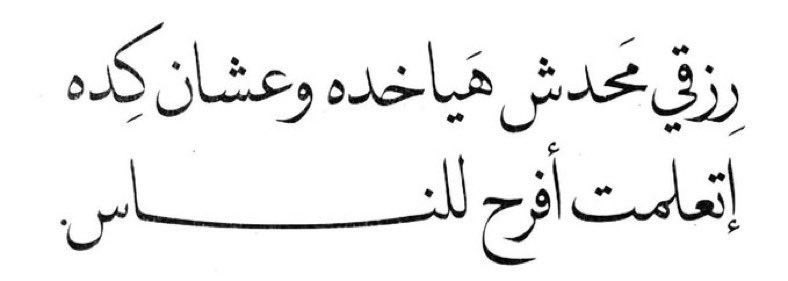 رِزقي مَحدش هَياخده وعشان كِده
إتعلمت أفرح للنـــــــــــاس.